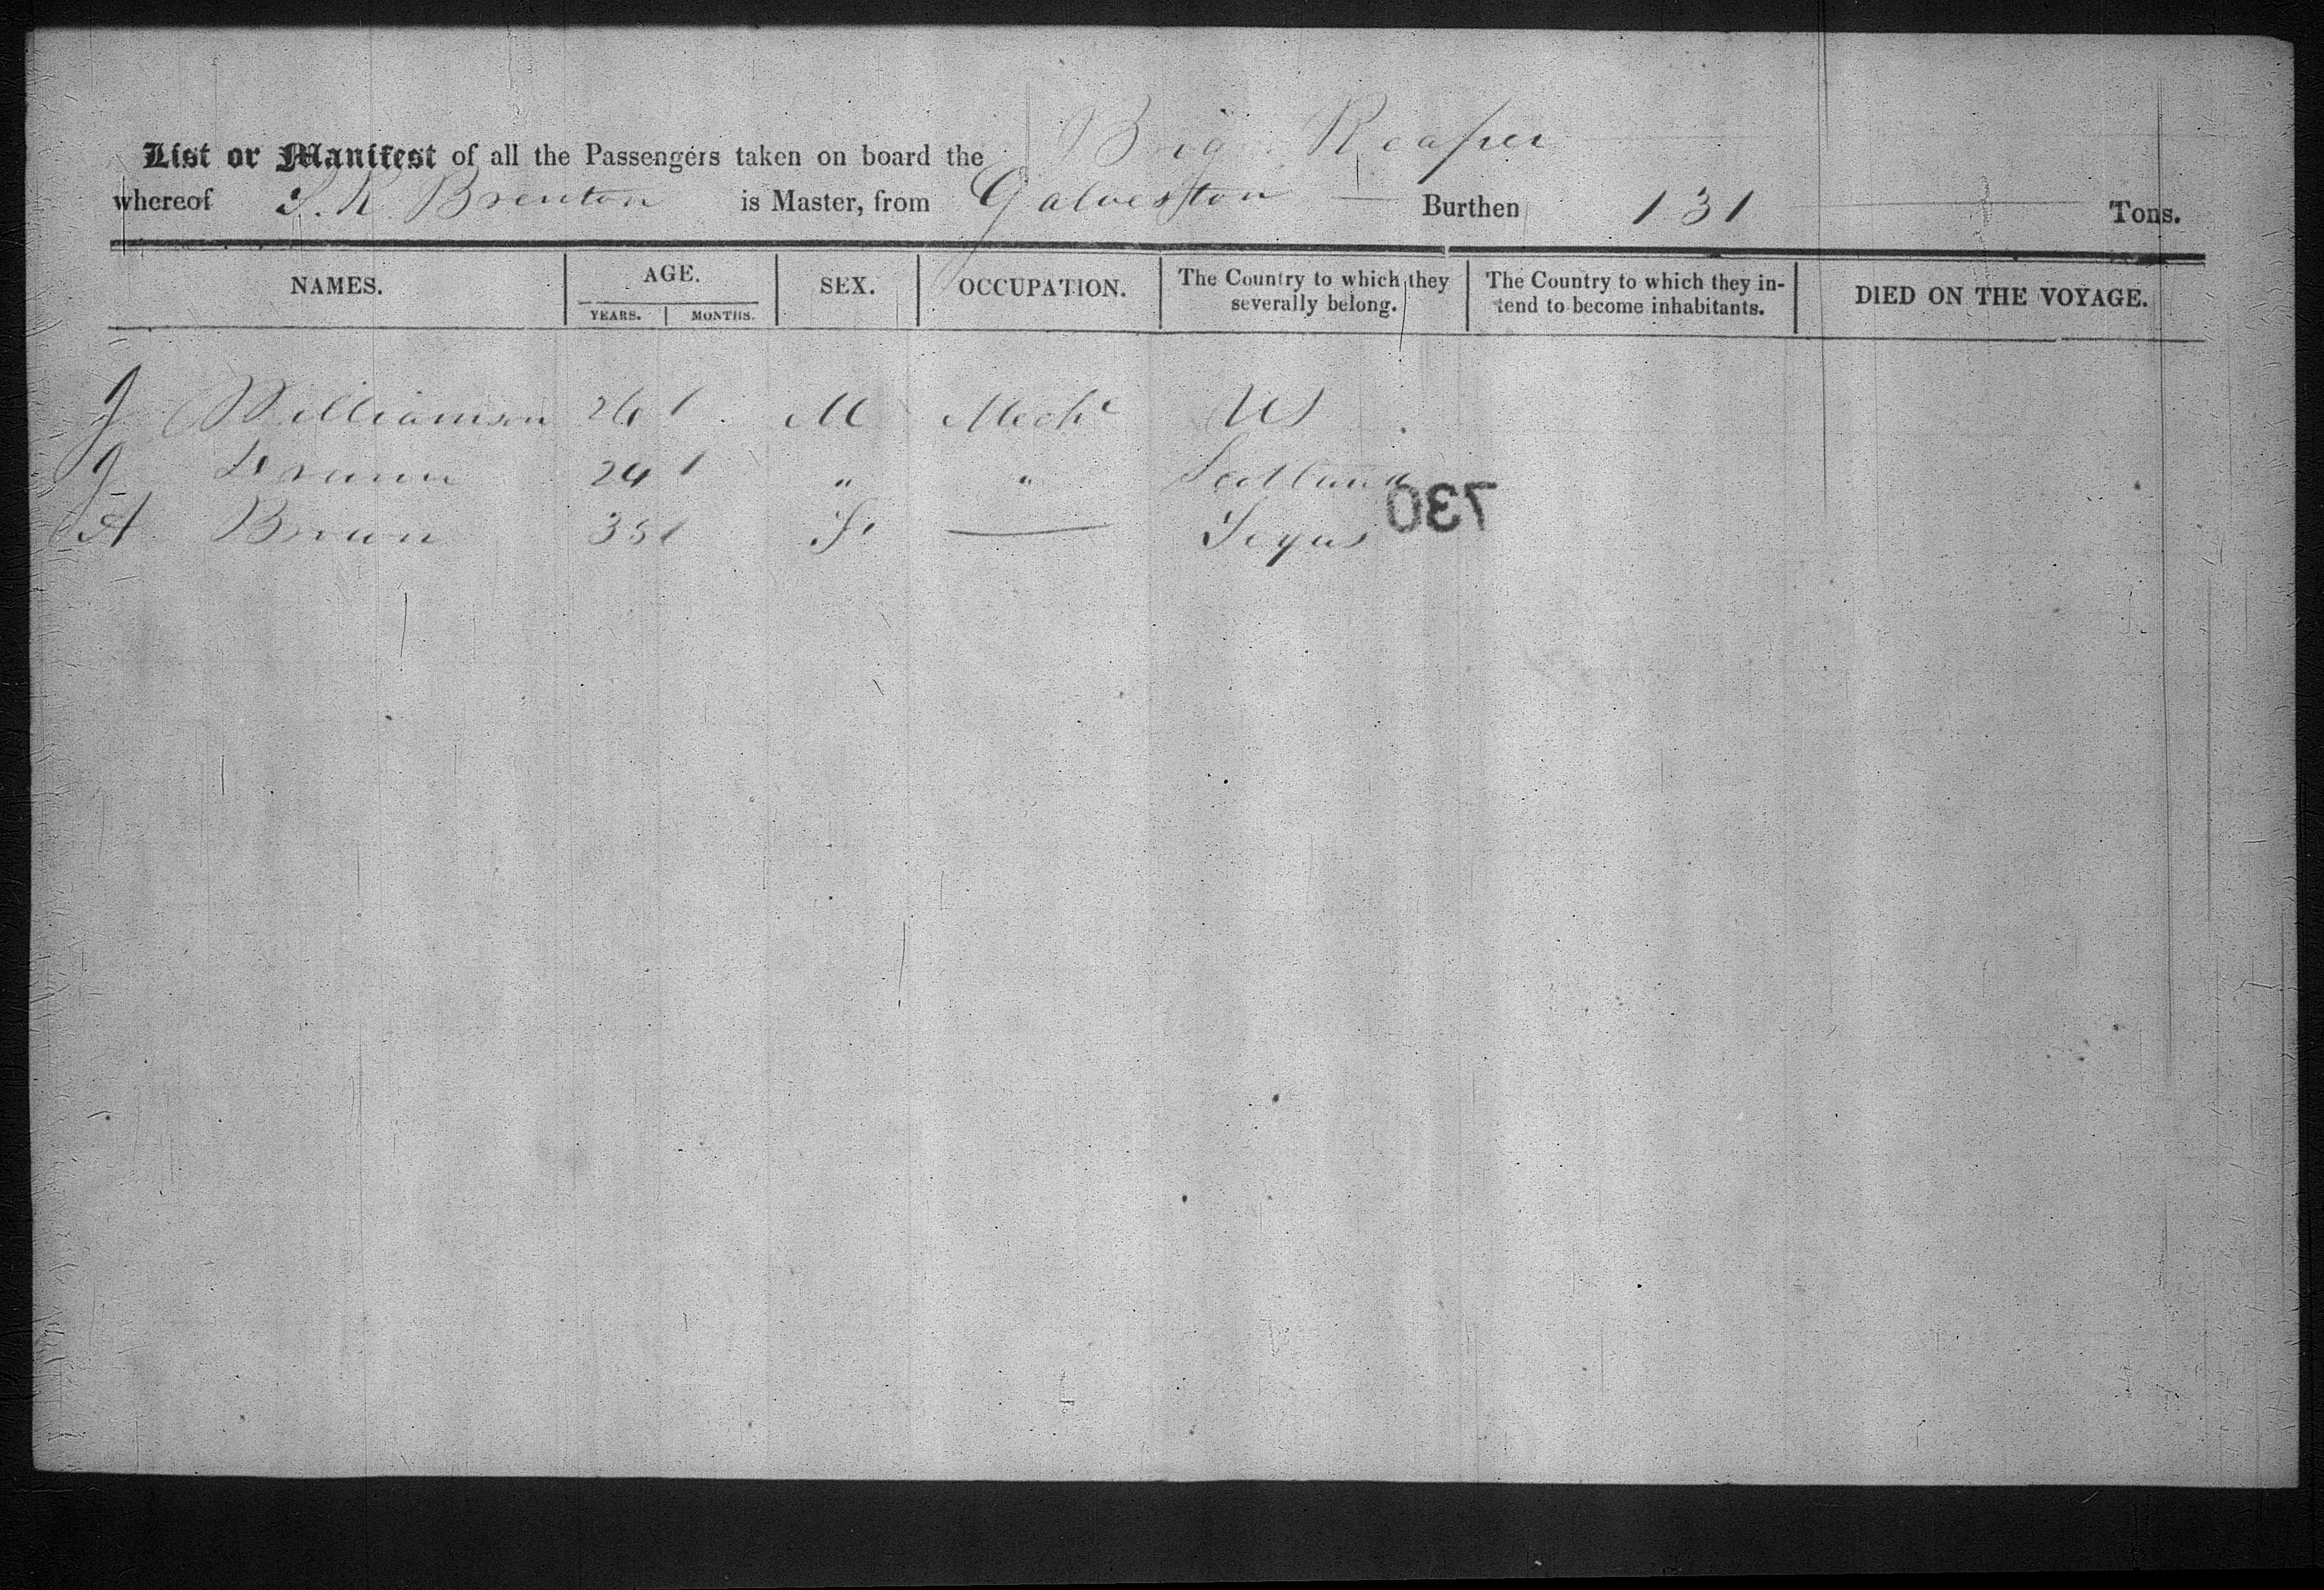 List or Manifest of all the Passengers taken on board the Brig Reaper
whereof S. K. Brenton is Master, from Galveston Burthen 131 Tons.
NAMES. AGE. SEX. OCCUPATION. The Country to which they severally belong. The Country to which they intend to become inhabitants. DIED ON THE VOYAGE.
YEARS. MONTHS.
J Williamson 26 M Mech US
J 24 " " Scotland
A Brown 35 F — Texas
730